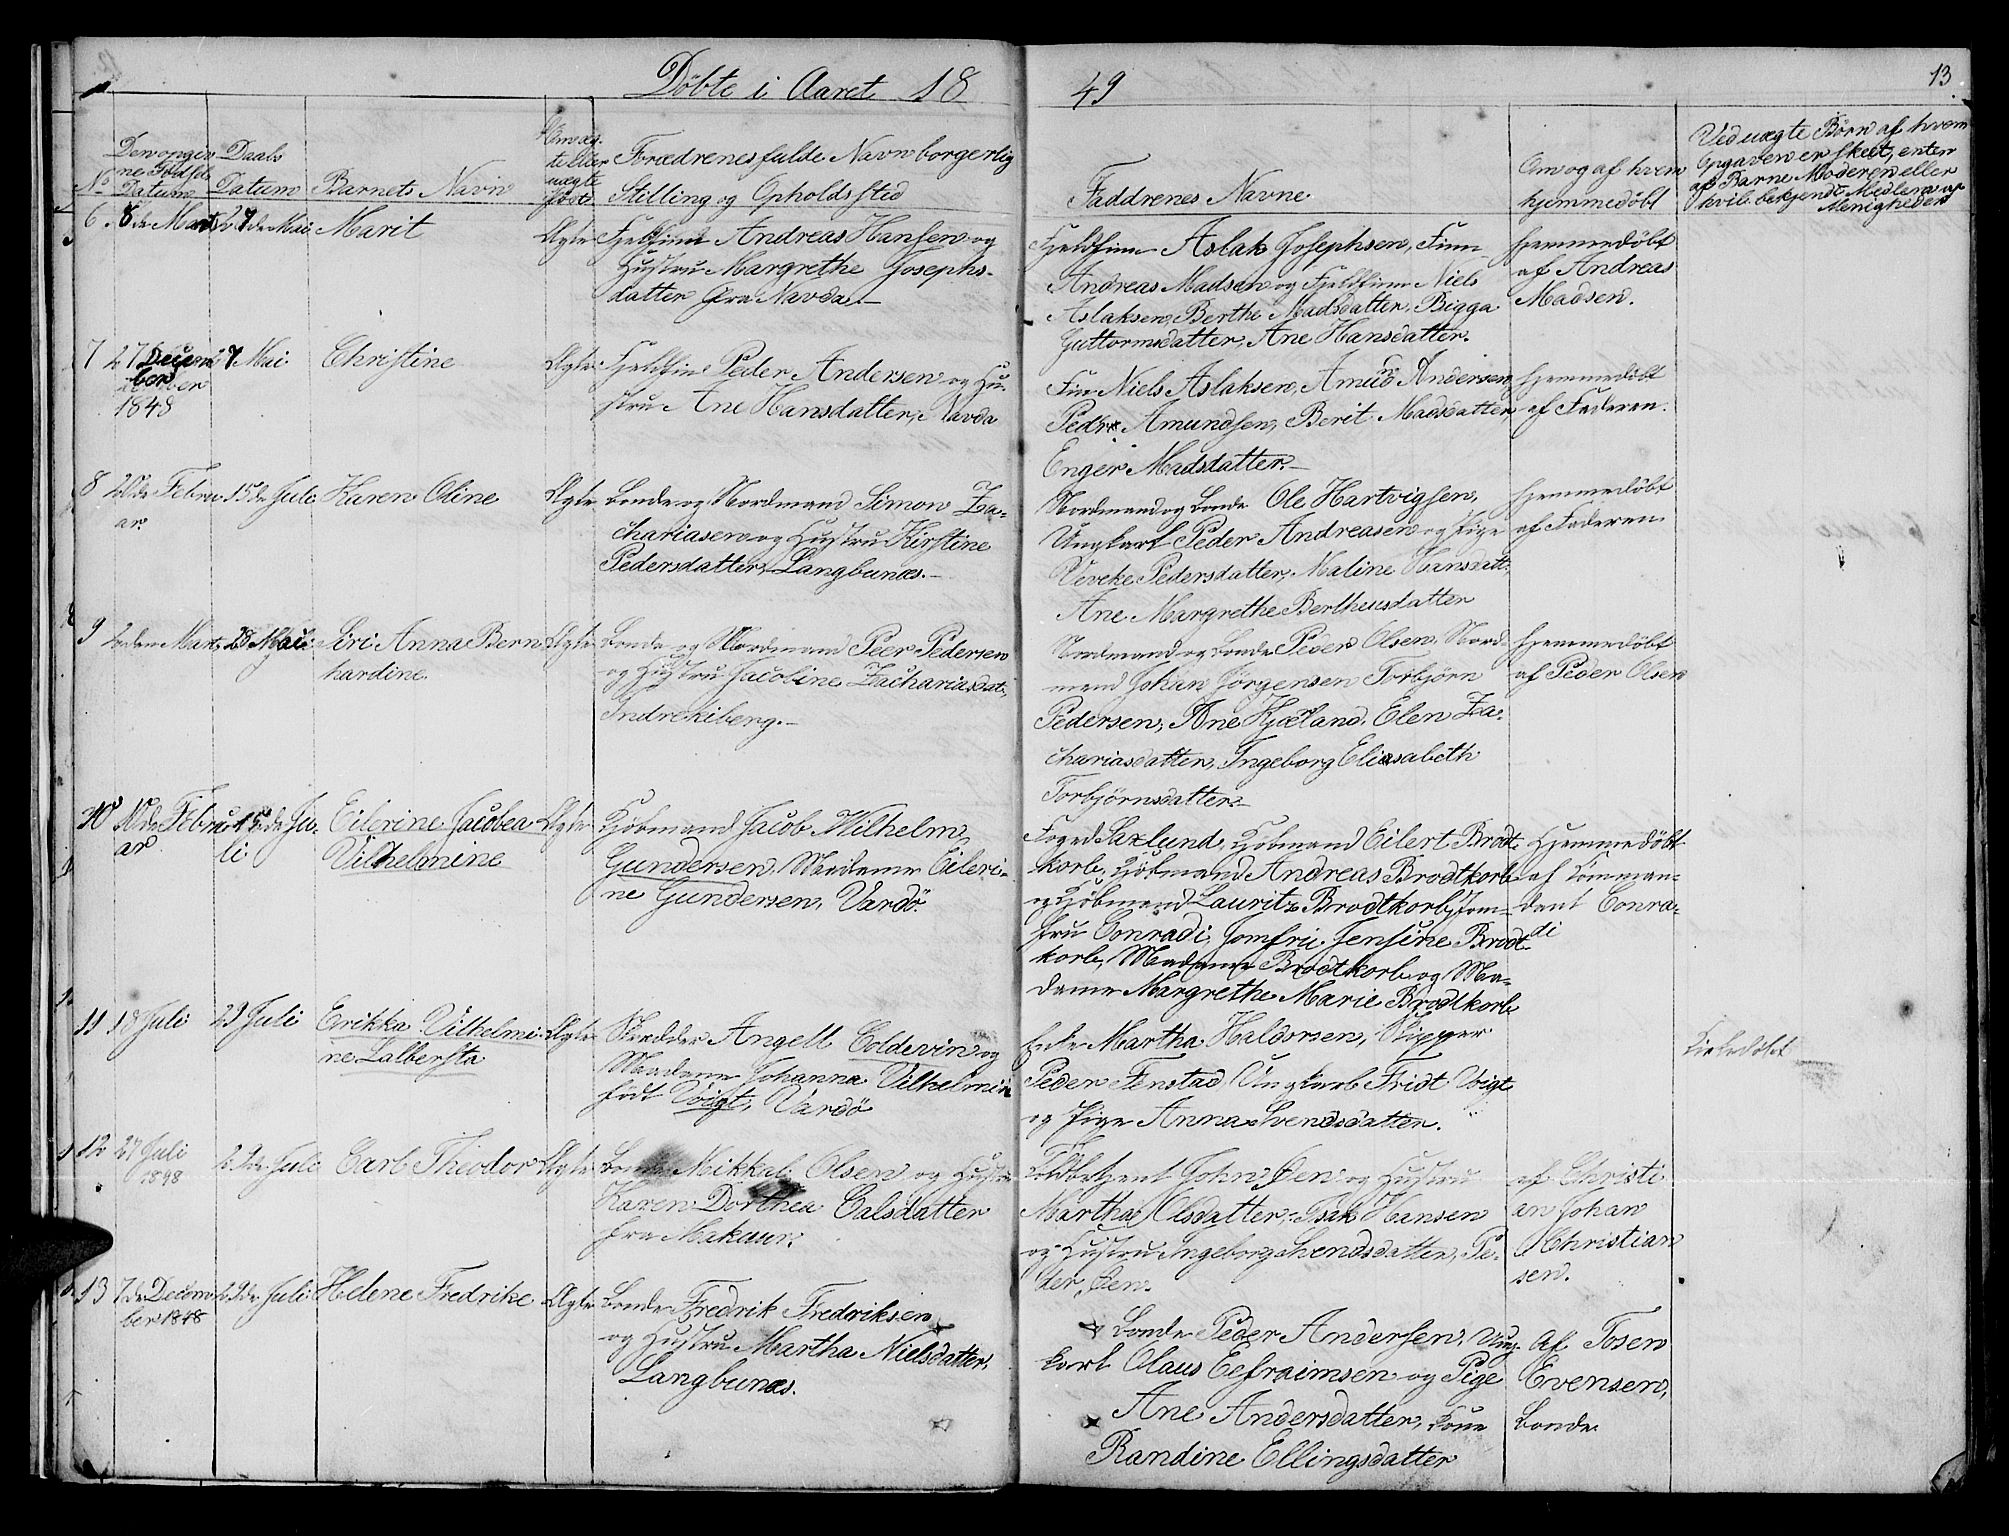 Döbte i Aaret 18
49
13
No
Den opgivne Födsels Datum
Daabs Datum
Barnets Navn
Om ægte eller uægte född
Forædrenes fulde Navn borgerlig
Stilling og Opholdssted
Faddrenes Navne
Om og af hvem
hjemmedöbt
Ved uægte Börn af hvem
Opgaven er skeet, enten
af Barne Moderen eller
hvile bekjendt Medlem af
Menigheden
6. 8de Marts 27de Mai Marit Ægte Fjeldfinn Andreas Hansen og
Hustru Margrethe Josephs-
datter fra Navda.-
Fjeldfinn Aslak Josephsen, Finn
Andreas Madsen og Fjeldfinn Niels
Aslaksen, Berthe Madsdatter, Bigga
Guttormsdatter, Ane Hansdatter.
Hjemmedöbt
af Andreas
Madsen.
7 27 December 1848 27 Mai Christine Ægte Fjeldfin Peder Andersen og Hu-
stru Ane Hansdatter, Navda
Fin Niels Aslaksen, Amund Andersen,
Peder Amundsen, Berit Madsdatter,
Enger Madsdatter.-
Hjemmedöbt
af Faderen.
8 20de Febru
ar 15de Juli Karen Oline Ægte Bonde og Nordmand Simon Za-
chariasen og Hustru Kirstine
Pedersdatter, Langbunæs.-
Nordmand og Bonde Ole Hartvigsen,
Ungkarl Peder Andreasen og Pige
Veveke Pedersdatter, Maline Hansdatt,
Ane Margrethe Bertheusdatter
Hjemmedöbt
af Faderen.
9 Marts 28 Mai Siri Anna Bern
hardine. Ægte Bonde og Nordmand Peer Pedersen
og Hustru Jacobine Zachariasdat,
Indrekiberg.-
Nordmand og Bonde Peder Olsen, Nord-
mand Johan Jörgensen Torbjörn
Pedersen, Ane Kjærland, Elen Za-
chariasdatter, Ingeborg Eliasabeth
Torbjörnsdatter.-
Hjemmedöbt
af Peder Olsen
10 10de Febru
ar 15de Ju-
li Eilerine Jacobea
Vilhelmine Ægte Kjöbmand Jacob Wilhelm
Gundersen, Madame Eileri-
ne Gundersen, Vardö.
Foged Saxlund, Kjöbmand Eilert Brodt-
korb, Kjöbmand Andreas Brodtkorb
og Kjöbmand Lauritz Brodtkorb, Jom-
fru Conradi, Jomfru Jensine Brodt-
korb, Madame Brodtkorb og Ma-
dame Margrethe Marie Brodtkorb
Hjemmedöbt
af Komman-
dant Conra-
di
11 18 Juli 29 Juli Erikka Vilhelmi-
ne Lalbersta Ægte Skrædder Angell Coldevin og
Madame Johanna Vilhelmine
födt Voigt, Vardö
Enke Martha Haldorsen, Skipper
Peder Finstad Ungkarl Fridt Voigt
og Pige Anna Svendsdatter.
Kirkedöbt
12 27 Juli
1848 29de Juli Carl Theodor Ægte Bonde Mikkal Olsen og Hustru
Karen Dorthea Calsdatter
fra Makaur.
John Öen og Hustru
Martha Olsdatter, Isak Hansen
og Hustru Ingeborg Svendsdatter, Pe-
der Öen.
af Christi
an Johan
Christian
sen.
13 7de Decem
ber 1848 29de Juli Helene Fredrike Ægte Bonde Fredrik Fredriksen
og Hustru Martha Nielsdatter,
Langbunæs.
Bonde Peder Andersen, Ung-
karl Olaus Eefraimsen og Pige
Ane Andersdatter, Kone
Randine Ellingsdatter
Af Tosen
Evensen,
Bonde